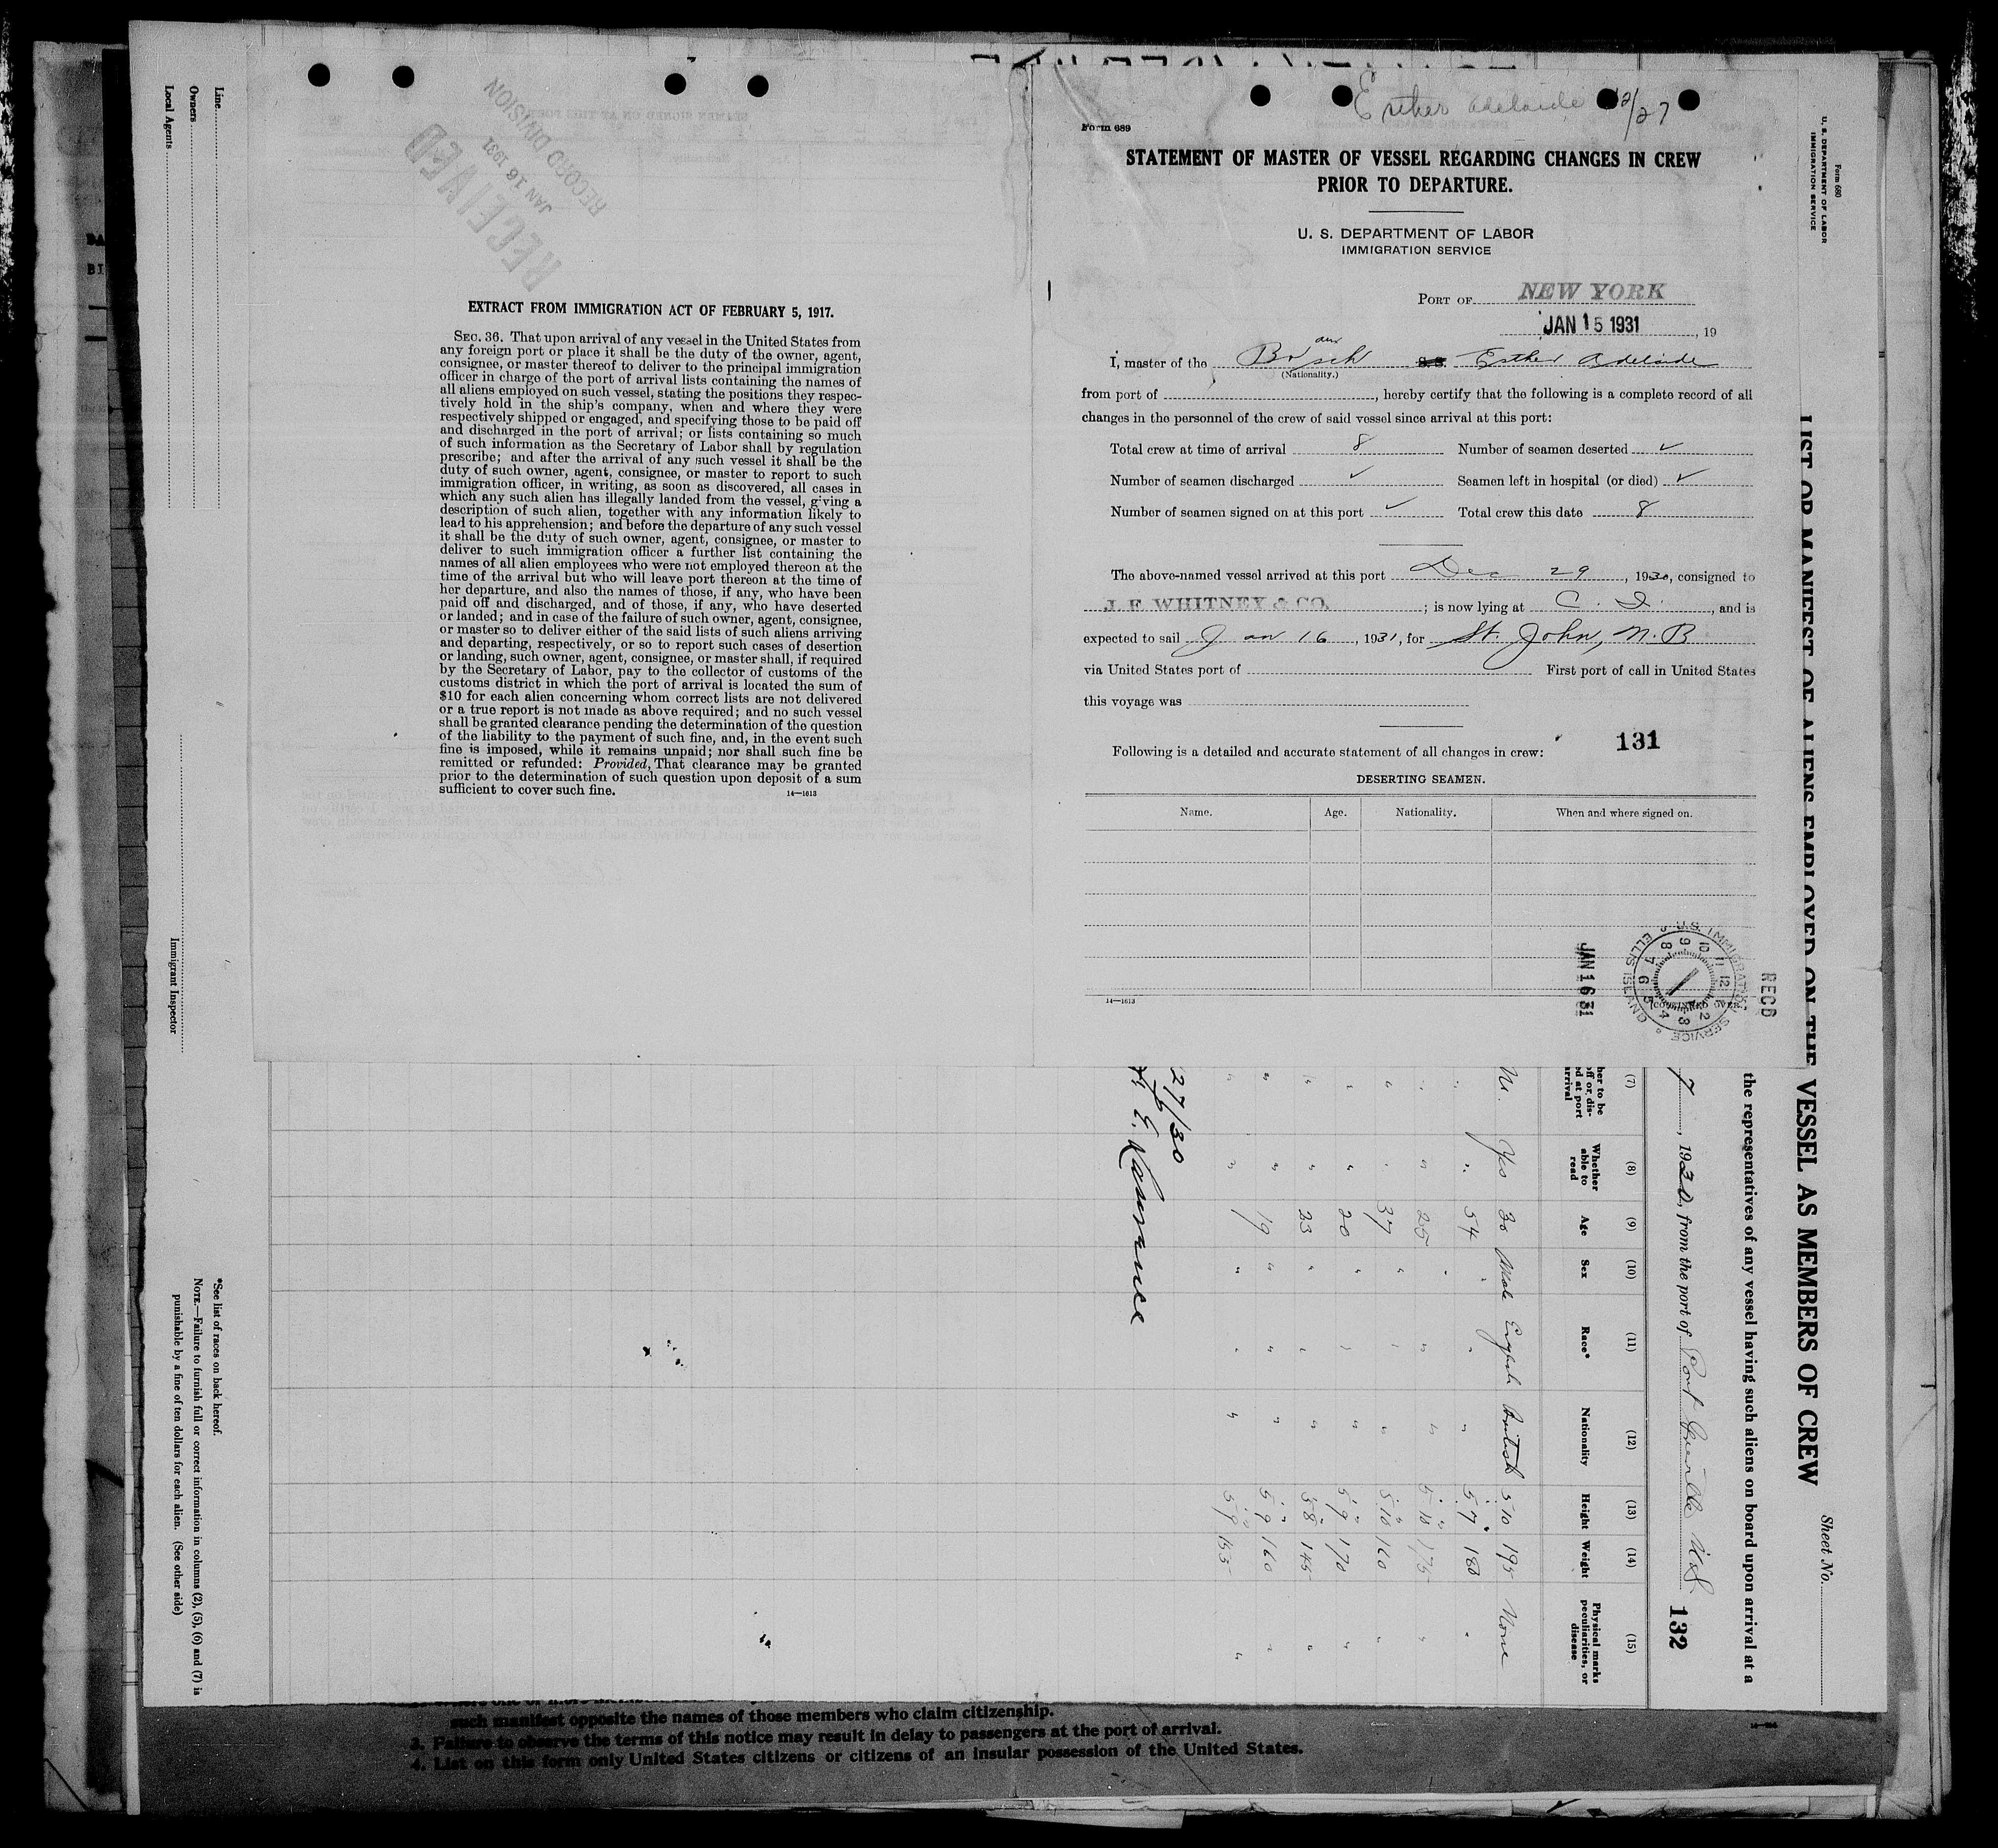 Esther Adelaide 12/27
Form 689
STATEMENT OF MASTER OF VESSEL REGARDING CHANGES IN CREW
PRIOR TO DEPARTURE.
U. S. DEPARTMENT OF LABOR
IMMIGRATION SERVICE
PORT OF NEW YORK
JAN 15 1931, 19
I, master of the Br sch Esther Adelaide
(Nationality.)
from port of , hereby certify that the following is a complete record of all
changes in the personnel of the crew of said vessel since arrival at this port:
Total crew at time of arrival 8 Number of seamen deserted ✓
Number of seamen discharged ✓ Seamen left in hospital (or died) ✓
Number of seamen signed on at this port ✓ Total crew this date 8
The above-named vessel arrived at this port Dec 29, 1930, consigned to
J. F. WHITNEY & CO. ; is now lying at C. I. , and is
expected to sail Jan 16, 1931, for St. John, N. B
via United States port of First port of call in United States
this voyage was
131
Following is a detailed and accurate statement of all changes in crew:
DESERTING SEAMEN.
Name. Age. Nationality. When and where signed on.
14—1613
JAN 16 31
U.S. IMMIGRATION SERVICE
ELLIS ISLAND
RECD
RECEIVED
JAN 16 1931
RECORD DIVISION
EXTRACT FROM IMMIGRATION ACT OF FEBRUARY 5, 1917.
SEC. 36. That upon arrival of any vessel in the United States from
any foreign port or place it shall be the duty of the owner, agent,
consignee, or master thereof to deliver to the principal immigration
officer in charge of the port of arrival lists containing the names of
all aliens employed on such vessel, stating the positions they respec-
tively hold in the ship's company, when and where they were
respectively shipped or engaged, and specifying those to be paid off
and discharged in the port of arrival; or lists containing so much
of such information as the Secretary of Labor shall by regulation
prescribe; and after the arrival of any such vessel it shall be the
duty of such owner, agent, consignee, or master to report to such
immigration officer, in writing, as soon as discovered, all cases in
which any such alien has illegally landed from the vessel, giving a
description of such alien, together with any information likely to
lead to his apprehension; and before the departure of any such vessel
it shall be the duty of such owner, agent, consignee, or master to
deliver to such immigration officer a further list containing the
names of all alien employees who were not employed thereon at the
time of the arrival but who will leave port thereon at the time of
her departure, and also the names of those, if any, who have been
paid off and discharged, and of those, if any, who have deserted
or landed; and in case of the failure of such owner, agent, consignee,
or master so to deliver either of the said lists of such aliens arriving
and departing, respectively, or so to report such cases of desertion
or landing, such owner, agent, consignee, or master shall, if required
by the Secretary of Labor, pay to the collector of customs of the
customs district in which the port of arrival is located the sum of
$10 for each alien concerning whom correct lists are not delivered
or a true report is not made as above required; and no such vessel
shall be granted clearance pending the determination of the question
of the liability to the payment of such fine, and, in the event such
fine is imposed, while it remains unpaid; nor shall such fine be
remitted or refunded: Provided, That clearance may be granted
prior to the determination of such question upon deposit of a sum
sufficient to cover such fine.
14—1613
Form 680
U. S. DEPARTMENT OF LABOR
IMMIGRATION SERVICE
Sheet No.
LIST OR MANIFEST OF ALIENS EMPLOYED ON THE VESSEL AS MEMBERS OF CREW
the representatives of any vessel having such aliens on board upon arrival at a
7, 1930, from the port of Port Greville N.S
132
(7) (8) (9) (10) (11) (12) (13) (14) (15)
Whether able to read Age Sex Race* Nationality Height Weight Physical marks, peculiarities, or disease
Yes 30 Male English British 5 10 195 None
" 54 " " " 5 7 180 "
" 25 " " " 5 10 175 "
" 37 " " " 5 10 160 "
" 20 " " " 5 9 170 "
" 23 " " " 5 8 145 "
" 19 " " " 5 9 160 "
27/30
Line
Owners
Local Agents
Immigrant Inspector
*See list of races on back hereof.
NOTE.—Failure to furnish full or correct information in columns (2), (5), (6) and (7) is
punishable by a fine of ten dollars for each alien. (See other side)
such manifest opposite the names of those members who claim citizenship.
3. Failure to observe the terms of this notice may result in delay to passengers at the port of arrival.
4. List on this form only United States citizens or citizens of an insular possession of the United States.